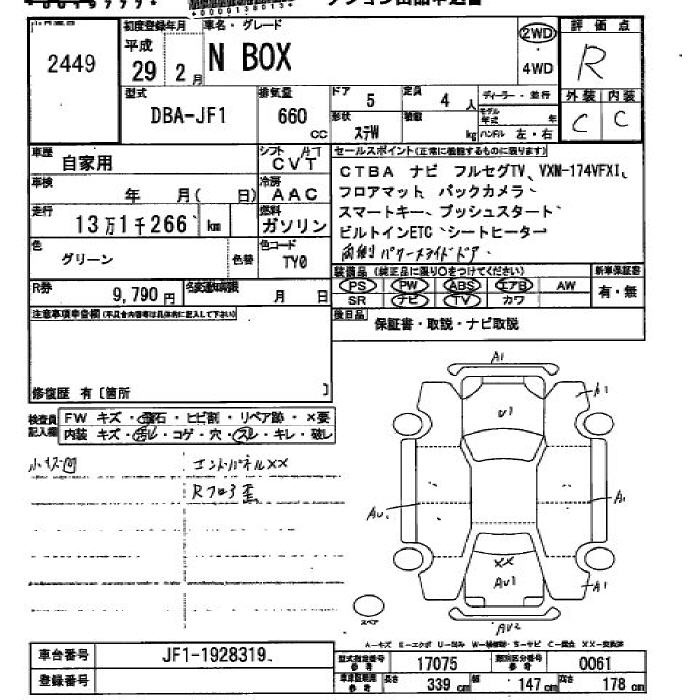 2449
初度登録年月
平成
29 2月
車名・グレード
N BOX
2WD
4WD
評価点
R
外装 内装
C C
型式
DBA-JF1
排気量
660
cc
ドア 5
定員 4 人
形状 ステW
積載 kg
ディーラー・並行
モデル年式 年
ハンドル 左・右
車歴 自家用
シフト AT
CVT
車検 年 月( 日)
冷房 AAC
走行 13万1千266 km
燃料 ガソリン
色 グリーン
色替
色コード TY0
R券 9,790円
月 日
セールスポイント(正常に機能するものに限ります)
CTBA ナビ フルセグTV、VXM-174VFXI、
フロアマット、バックカメラ、
スマートキー、プッシュスタート、
ビルトインETC、シートヒーター、
両側パワースライドドア、
装備品 (純正品に限り〇をつけてください)
PS PW ABS エアB AW
SR ナビ TV カワ
新車保証書
有・無
後日品 保証書・取説・ナビ取説
注意事項車金額(不具合内容等は具体的に記入して下さい)
修復歴 有〔箇所 〕
検査員記入欄
FW キズ・飛石・ヒビ割・リペア跡・×要
内装 キズ・汚レ・コゲ・穴・スレ・キレ・破レ
小キズ凹
エンドパネルXX
Rフロア歪
A1
A1
U1
AU
A1
XX
AU1
A1
AU2
スペア
A-キズ E-エクボ U-凹み W-補修跡 S-サビ C-腐蝕 XX-交換済
車台番号 JF1-1928319
登録番号
型式指定番号 参考 17075
類別区分番号 参考 0061
車車証期用 参考 長さ 339 cm 幅 147 cm 高さ 178 cm